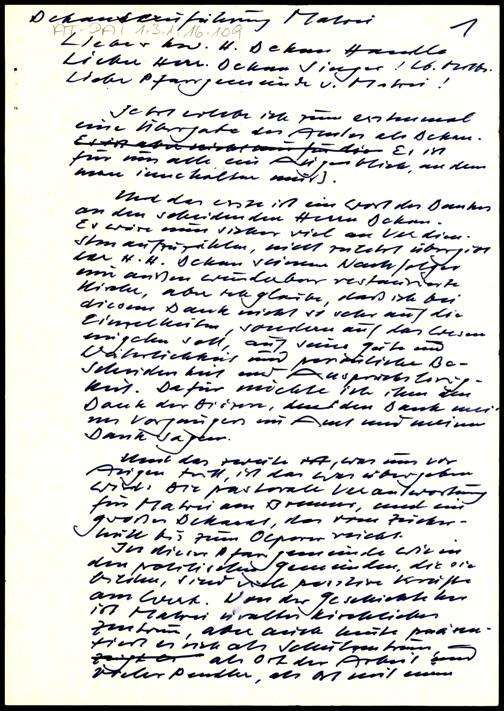 Dekanseinführung Matrei 1
AT-DAI 1.3.1.16.109
Lieber hw. H. Dekan Handle
Lieber Herr Dekan Singer! Lb. Mitbr.
Liebe Pfarrgemeinde v. Matrei!
Jetzt erlebe ich zum erstenmal
eine Übergabe des Amtes als Dekan.
Es ist aber nicht nur für die Es ist
für uns alle ein Augenblick, an dem
man innehalten muß.
Und das erste ist ein Wort des Dankes
an den scheidenden Herrn Dekan.
Es wäre nun sicher viel an Verdien-
sten aufzuzählen, nicht zuletzt übergibt
der H.H. Dekan seinem Nachfolger
eine außen wunderbar restaurierte
Kirche, aber ich glaube, daß ich bei
diesem Dank nicht so sehr auf die
Einzelheiten, sondern auf das Wesen
eingehen soll, auf seine Güte und
Väterlichkeit und persönliche Be-
scheidenheit und Anspruchslosig-
keit. Dafür möchte ich ihm den
Dank der Diözese, den Dank mei-
nes Vorgängers im Amt und meinen
Dank sagen.
Und das zweite ist, was uns vor
Augen tritt, ist das was übergeben
wird: Die pastorale Verantwortung
für Matrei am Brenner, und ein
großes Dekanat, das vom
bis zum Olperer reicht.
In dieser Pfarrgemeinde wie in
den politischen Gemeinden, die sie
bilden, sind viele positive Kräfte
am Werk. Von der Geschichte her
ist Matrei uraltes kirchliches
Zentrum, aber auch heute präsen-
tiert es sich als Schulzentrum
als Ort der Arbeit und
vieler Pendler, als Ort mit einem